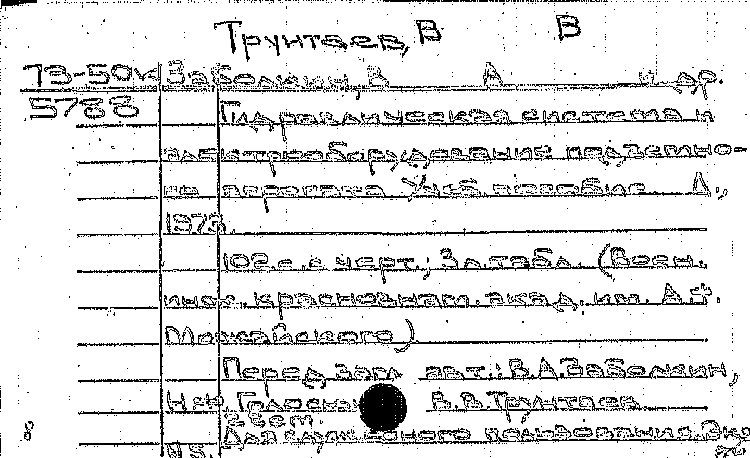 Трунтаев, В В
73-50к Заболкин, В А и др.
5788 Гидравлическая система и
электрооборудование подземно-
го паровоза. Учеб. пособие. Л.,
1973.
102 с. с черт.; 3 л. табл. (Воен.
инж. краснознам. акад. им. А.Ф.
Можайского)
Перед загл. авт.: В.А. Заболкин,
В.В. Трунтаев
22 см.
Для служебного пользования. Экз